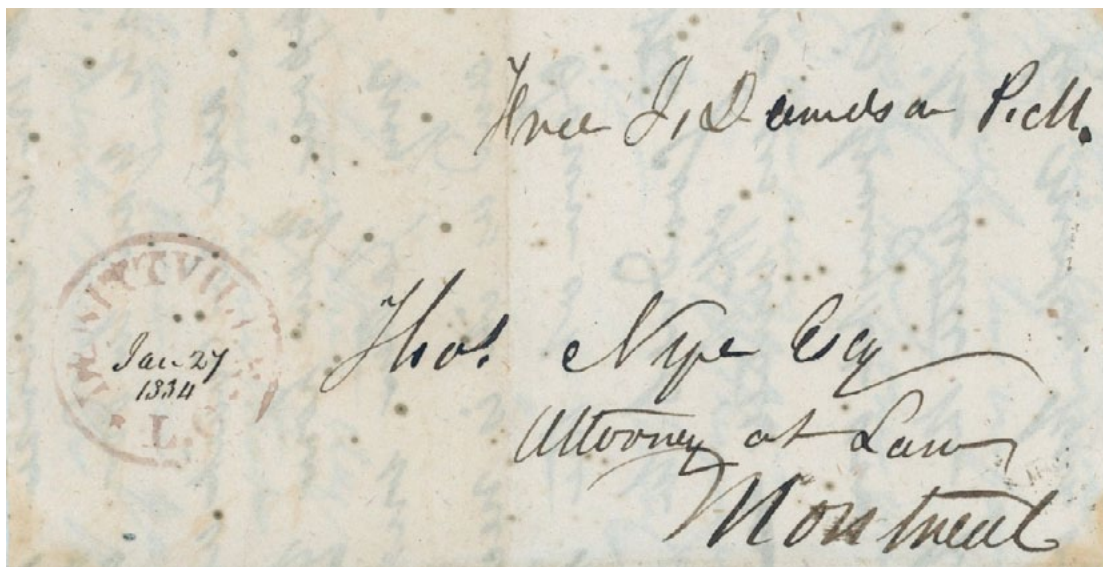 Free J. Davidson P.M.
Jan 27
1834
L.C.
Thos. Nye Esq
Attorney at Law
Montreal